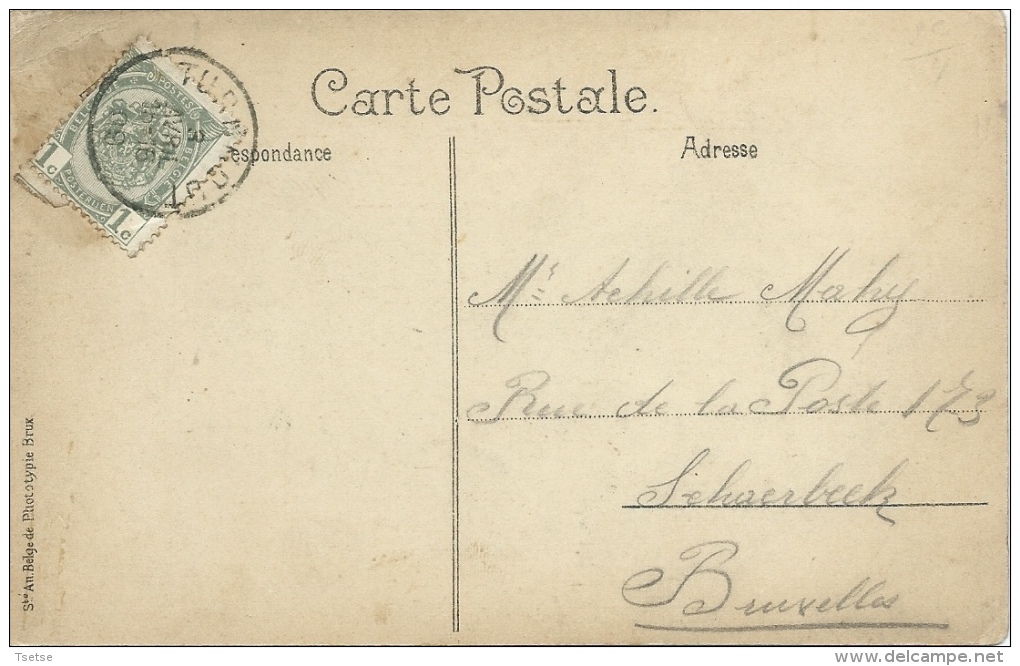 Carte Postale.
espondance
Adresse
1c
1c
POSTERIJEN
Mr Achille Mahy
Rue de la Poste 173
Schaerbeek
Bruxelles
Sté An. Belge de Phototypie Brux.
Tsetse
delcampe.net